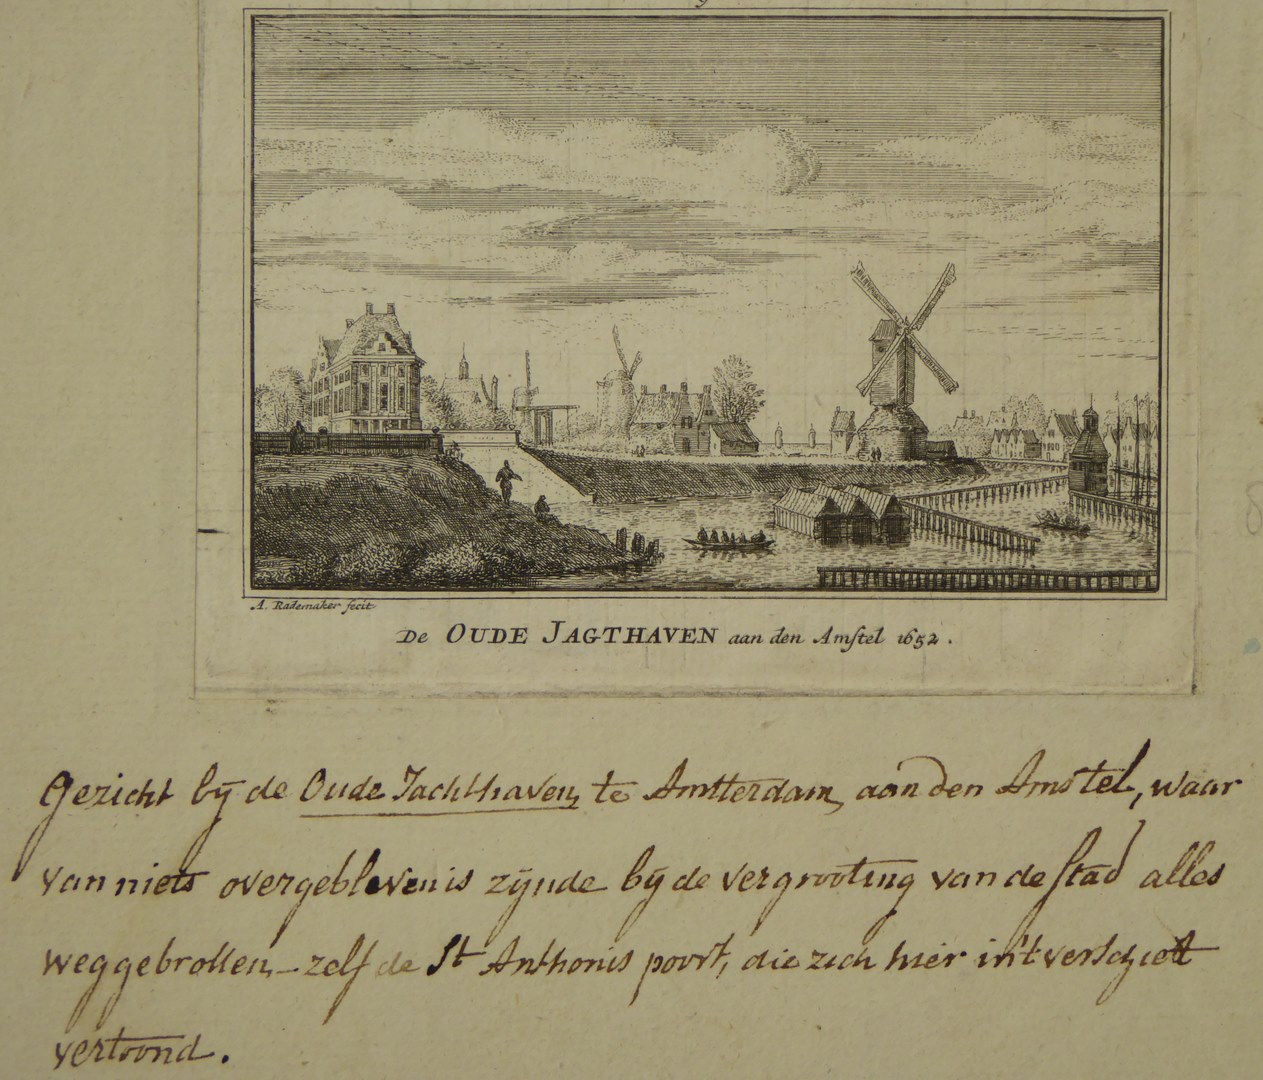 A. Rademaker fecit
De OUDE JAGTHAVEN aan den Amstel 1652.
Gezicht bÿ de Oude Jachthaven, te Amsterdam, aan den Amstel, waar
van niets overgebleven is zÿnde bÿ de vergrooting van de stad alles
weggebroken, - zelf de St Anthonis poort, die zich hier in't verschiet
vertoond.